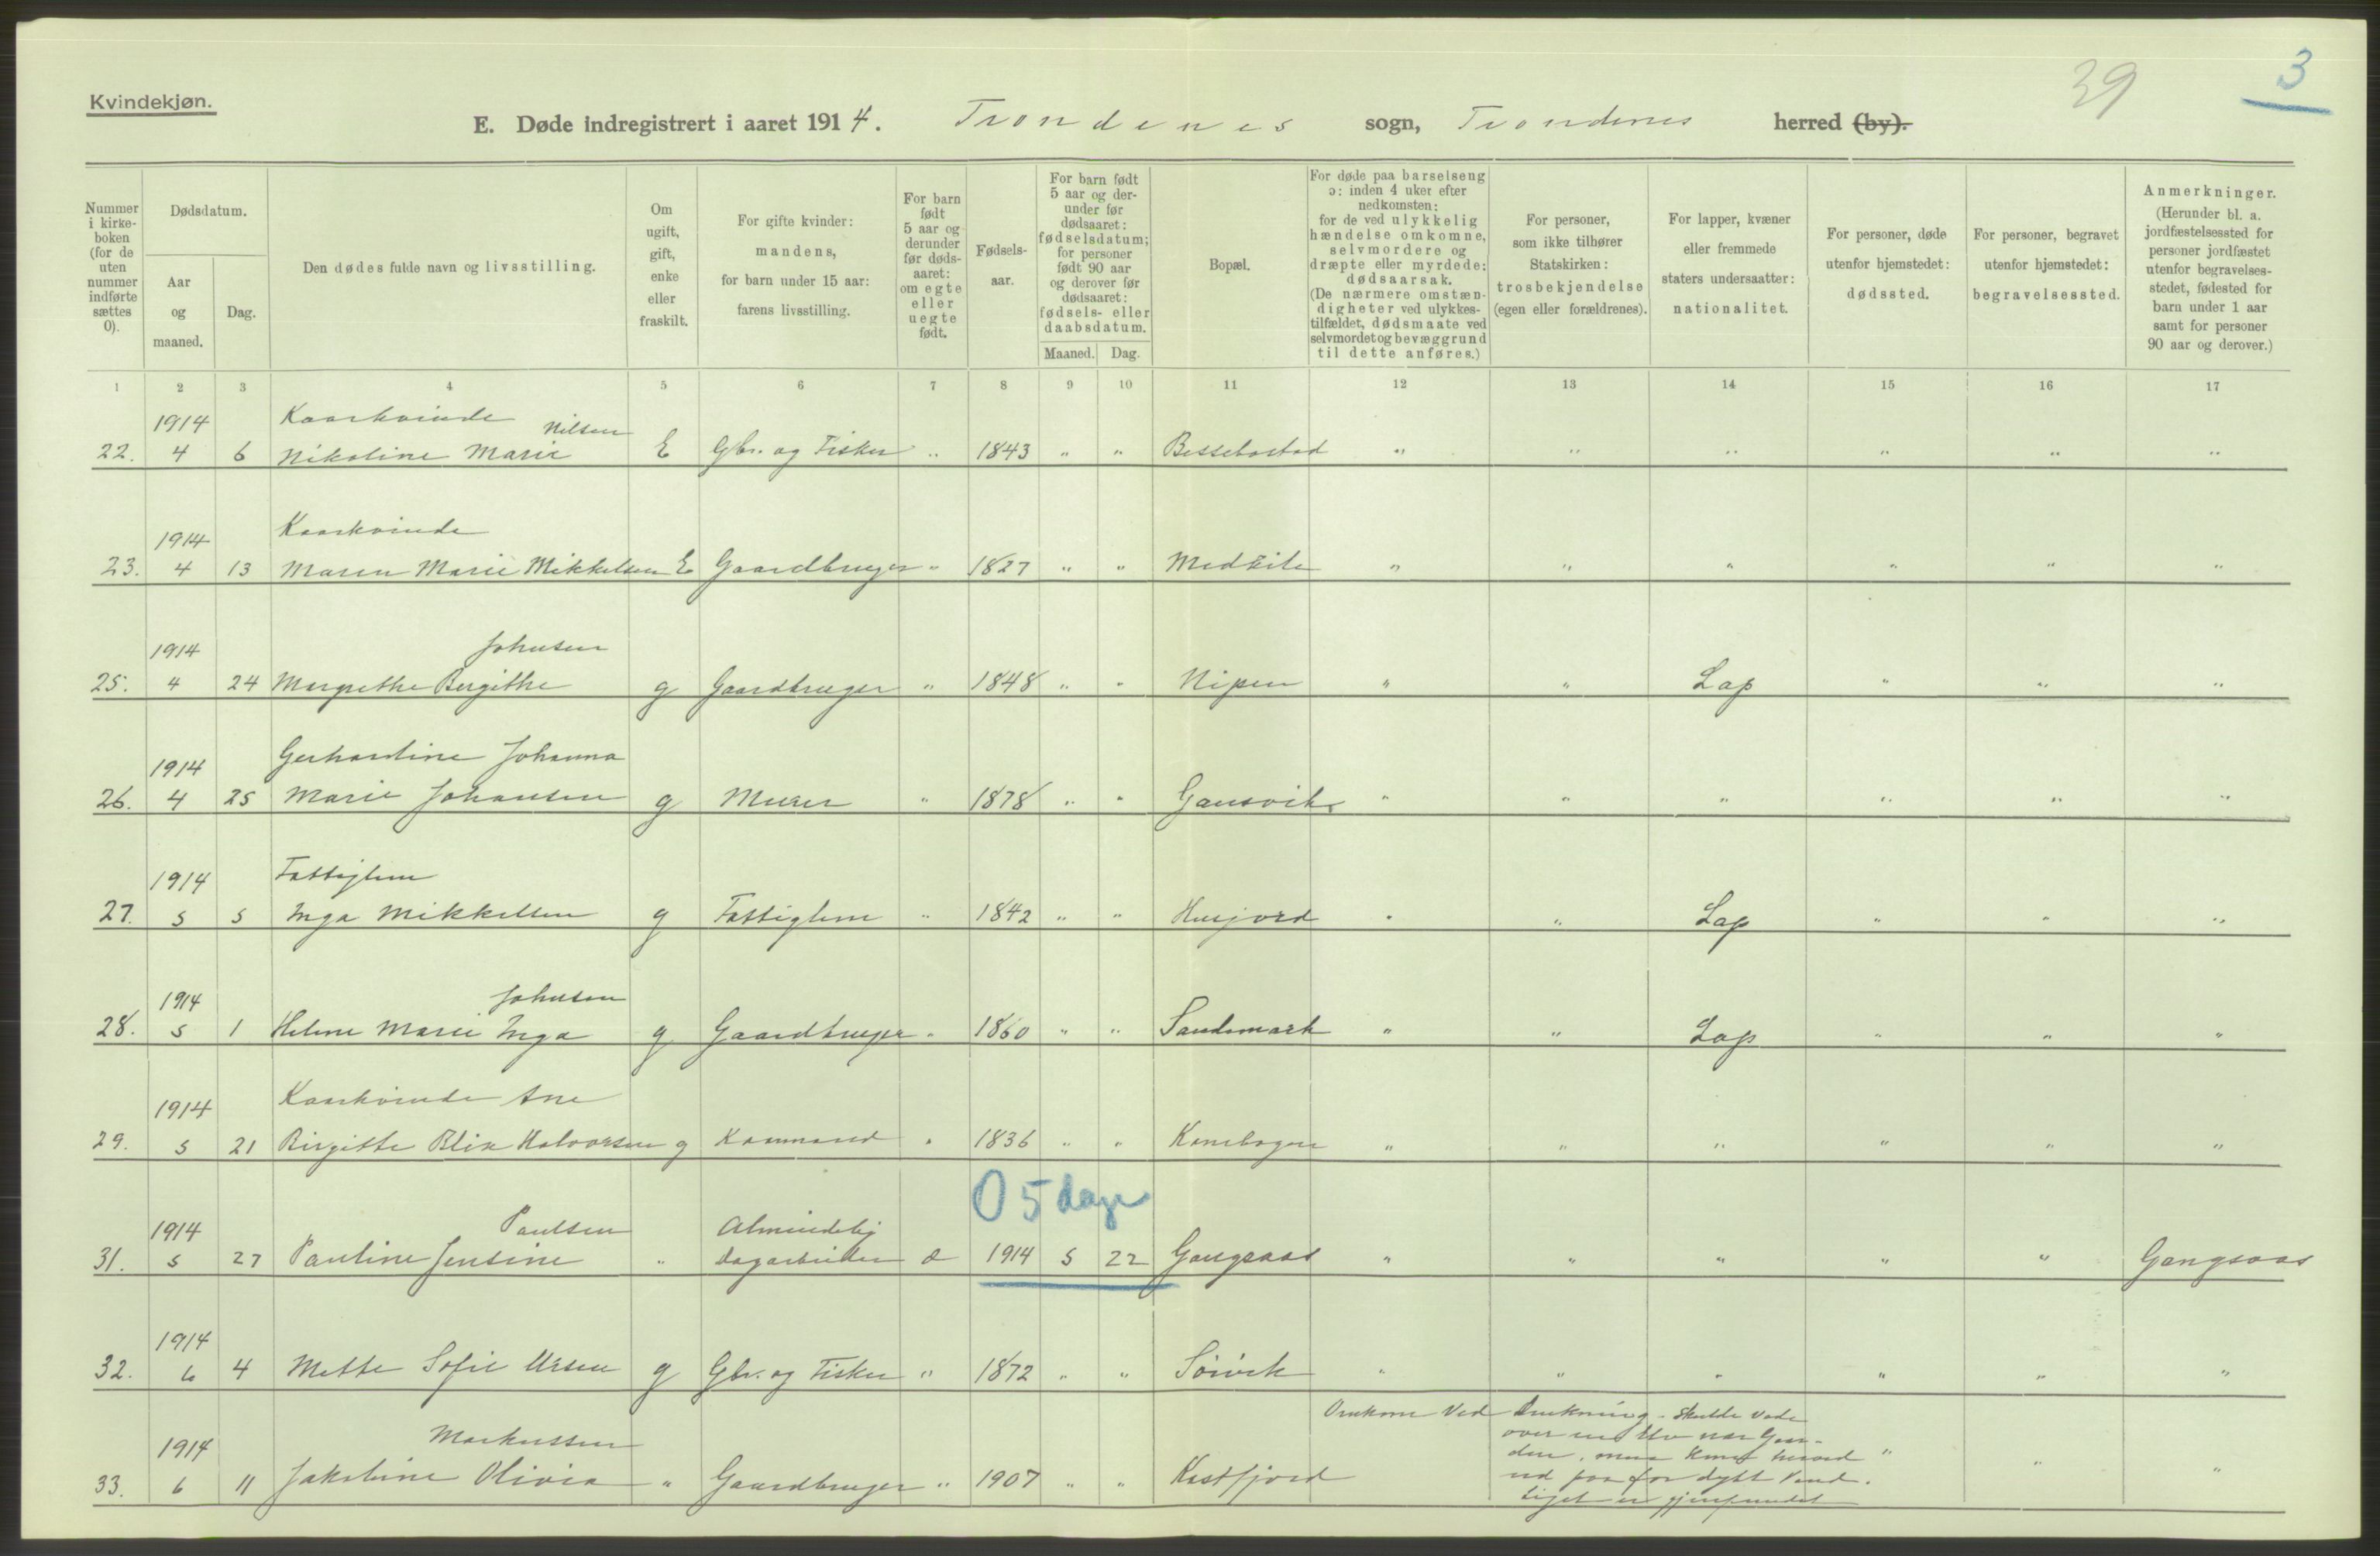 Kvindekjøn.
39
3
E. Døde indregistrert i aaret 1914. Trondenes sogn, Trondenes herred (by).
Nummer i kirke-boken (for de uten nummer indførte sættes 0).
Dødsdatum.
Aar og maaned.
Dag.
Den dødes fulde navn og livsstilling.
Om ugift, gift, enke eller fraskilt.
For gifte kvinder: mandens, for barn under 15 aar: farens livsstilling.
For barn født 5 aar og derunder før døds-aaret: om egte eller uegte født.
Fødsels-aar.
For barn født 5 aar og der-under før dødsaaret: fødselsdatum; for personer født 90 aar og derover før dødsaaret: fødsels- eller daabsdatum.
Maaned. Dag.
Bopæl.
For døde paa barselseng ɔ: inden 4 uker efter nedkomsten: for de ved ulykkelig hændelse omkomne, selvmordere og dræpte eller myrdede: dødsaarsak. (De nærmere omstæn-digheter ved ulykkes-tilfældet, dødsmaate ved selvmordet og bevæggrund til dette anføres.)
For personer, som ikke tilhører Statskirken: trosbekjendelse (egen eller forældrenes).
For lapper, kvæner eller fremmede staters undersaatter: nationalitet.
For personer, døde utenfor hjemstedet: dødssted.
For personer, begravet utenfor hjemstedet: begravelsessted.
Anmerkninger. (Herunder bl. a. jordfæstelsessted for personer jordfæstet utenfor begravelses-stedet, fødested for barn under 1 aar samt for personer 90 aar og derover.)
1 2 3 4 5 6 7 8 9 10 11 12 13 14 15 16 17
1914 Kaarkvinde Nilsen
22. 4 6 Nikoline Marie E Gbr. og Fisker " 1843 " " Bessebostad " " " " " "
1914 Kaarkvinde
23. 4 13 Maren Marie Mikkelsen E Gaardbruger " 1827 " " Medkile " " " " " "
1914 Johnsen
25. 4 24 Margrethe Bergithe g Gaardbruger " 1848 " " Nipen " " Lap " " "
1914 Gerhardine Johanna
26. 4 25 Marie Johansen g Murer " 1878 " " Gausvik " " " " " "
1914 Fattiglem
27. 5 5 Inga Mikkelsen g Fattiglem " 1842 " " Husjord " " Lap " " "
1914 Johnsen
28. 5 1 Helene Marie Inga g Gaardbruger " 1860 " " Sandsmark " " Lap " " "
1914 Kaarkvinde Ane
29. 5 21 Birgitte Blix Halvorsen g Kaarmand " 1836 " " Kanebogen " " " " " "
0 5 dage
1914 Paulsen Almindelig
31. 5 27 Pauline Jensine " Dagarbeider 1914 5 22 Gangsaas " " " " " Gangsaas
1914
32. 6 4 Mette Sofie Ursen g Gbr. og Fisker " 1872 " " Sörvik " " " " " "
1914 Markussen
33. 6 11 Jakobine Olivia " Gaardbruger " 1907 " " Kastfjord " " "
Omkom ved Drukning - Skulde vade
over en Elv nær Gaar-
den, men kom herved
ud paa for dybt Vand.
Liget er gjenfundet